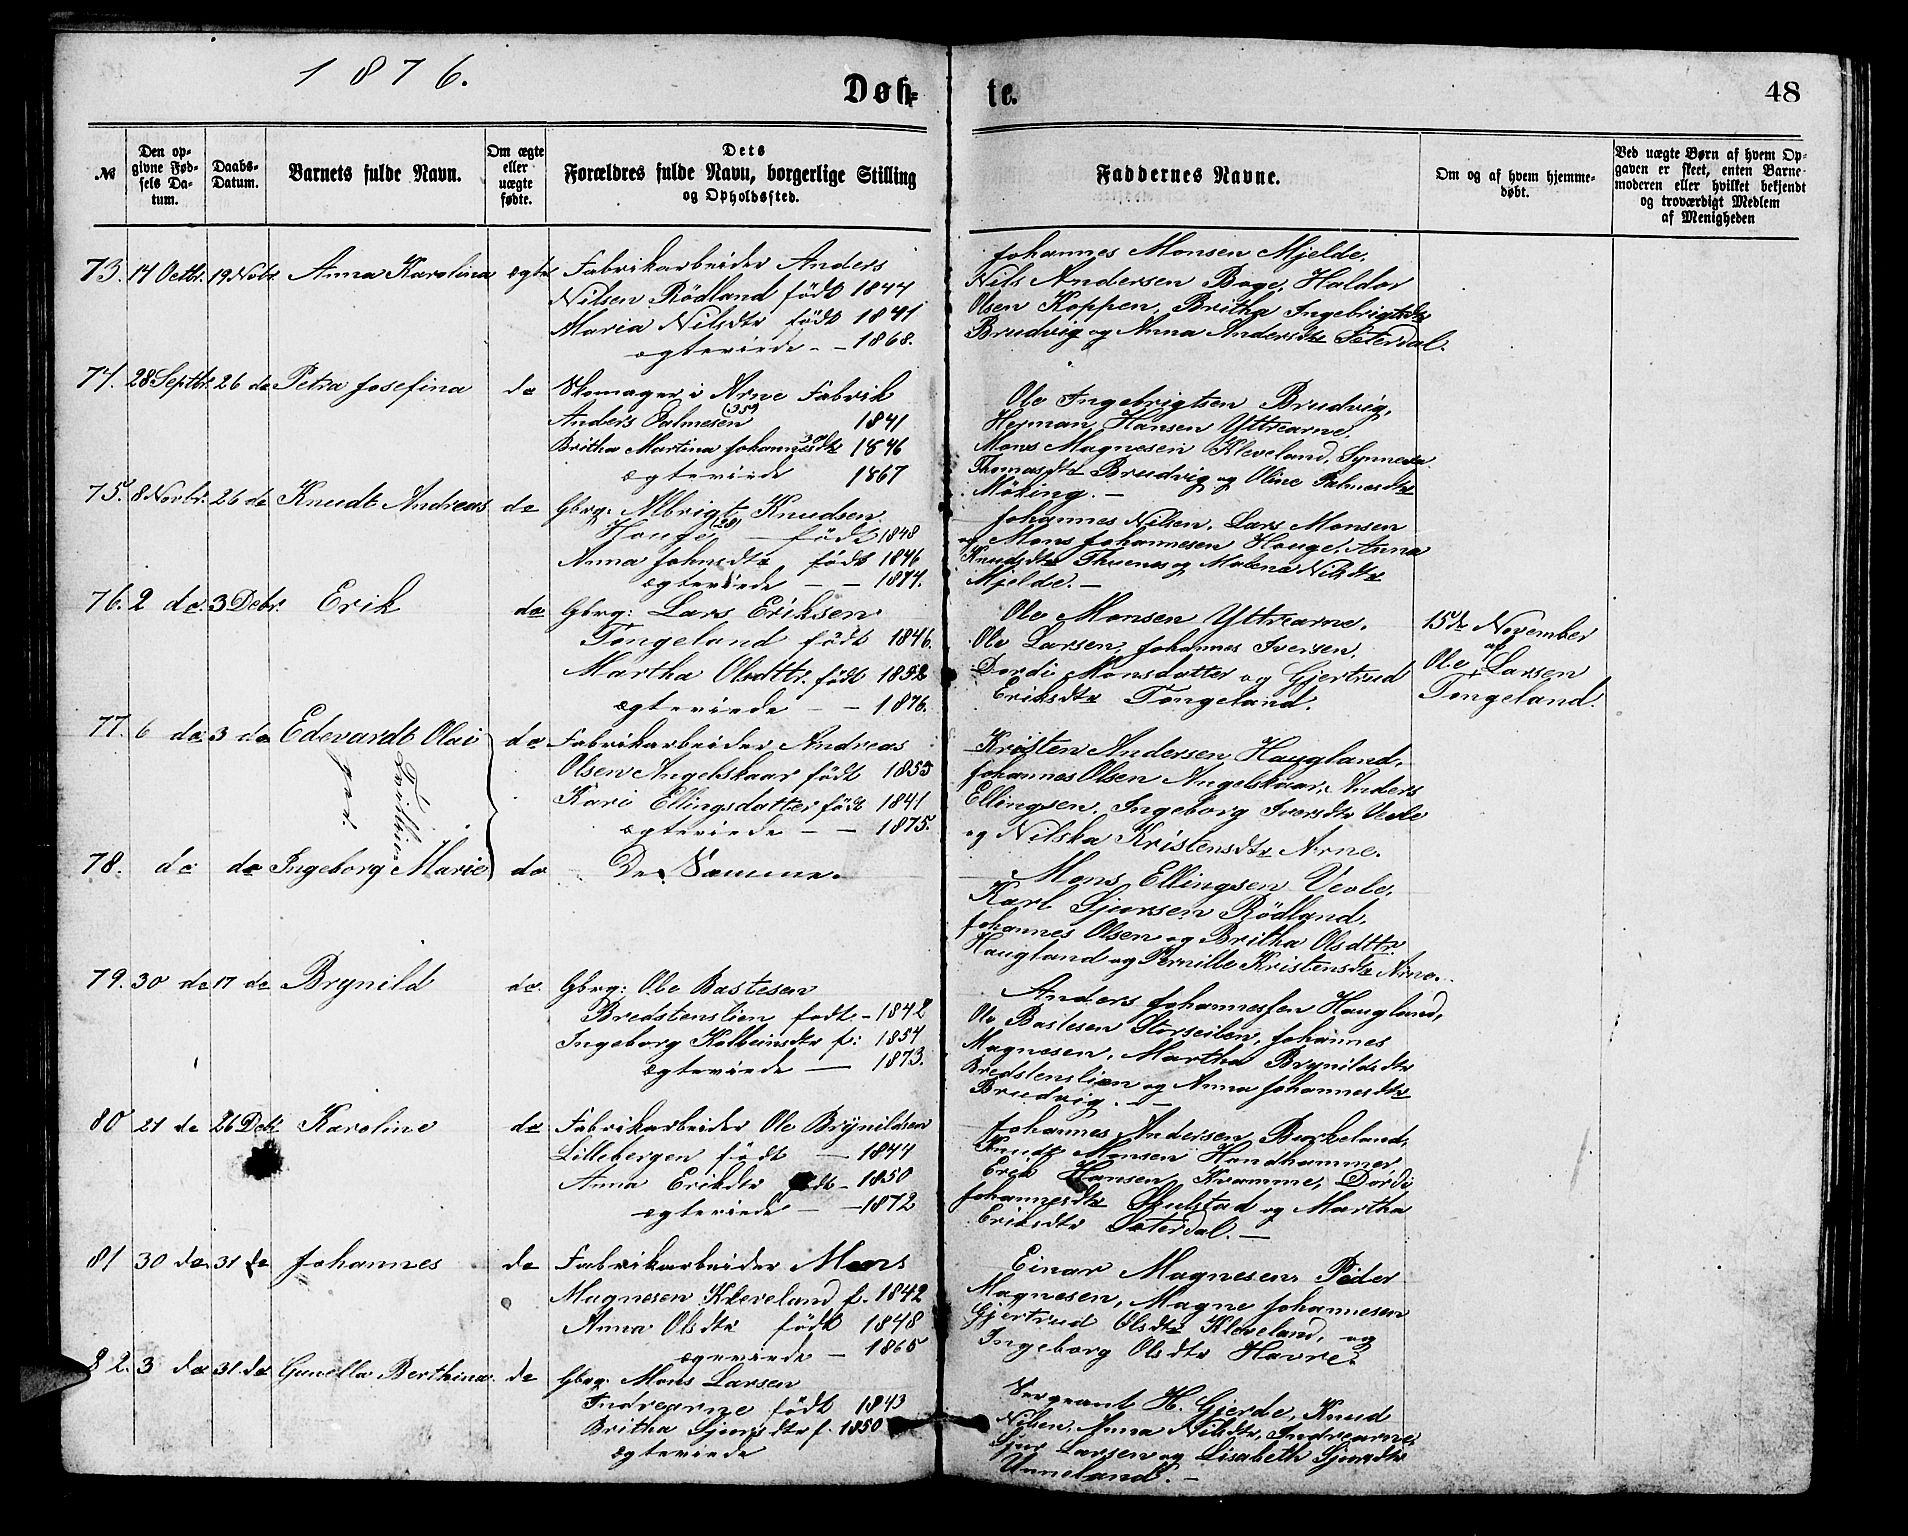 1876.
Døb-
te.
48
№
Den op-
givne Fød-
sels Da-
tum.
Daabs-
Datum.
Barnets fulde Navn.
Om ægte
eller
uægte
fødte.
Dets
Forældres fulde Navn, borgerlige Stilling
og Opholdssted.
Faddernes Navne.
Om og af hvem hjemme-
døbt.
Ved uægte Børn af hvem Op-
gaven er skeet, enten Barne-
moderen eller hvilket bekjendt
og troværdigt Medlem
af Menigheden
73. 17 Octbr. 19 Nobr. Anna Karolina ægte Fabrikarbeider Anders
Nilsen Rödland födt 1844
Maria Nilsdtr födt 1841
ægteviede - - 1868.
Johannes Monsen Mjelde,
Nils Andersen Boge, Haldor
Olsen Koppen, Britha Ingebrigtsdtr
Brudvig og Anna Andersdtr Seterdal.
74. 28 Septbr. 26 do Petra Josefina do Skomager i Arne Fabrik
Anders Palmesen (35) 1841
Britha Martina Johannesdtr 1846
ægteviede 1867
Ole Ingebrigtsen Brudvig,
Herman Hansen Yttrearne,
Mons Magnesen Kleveland, Synneva
Thomasdtr Brudvig og Oline Palmesdtr
Möking. -
75. 8 Novbr. 26 do Knudt Andreas do Gbrg: Albrigt Knudsen
Houge (28) - födt 1848
Anna Johnsdtr födt 1846
ægteviede - - 1874.
Johannes Nilsen, Lars Monsen
og Mons Johannesen Houge, Anna
Knudsdtr Thuenes og Malena Nilsdtr
Mjelde. -
76. 2 do. 3 Debr. Erik do Gbrg: Lars Eriksen
Tongeland födt 1846.
Martha Olsdttr. födt 1852
ægteviede - - 1876.
Ole Monsen Yttrearne,
Ole Larsen, Johannes Iversen,
Dordi Monsdatter og Gjertrud
Eriksdtr Tongeland.
15de November
af
Ole Larsen
Tongeland.
77. 6 do 3 do Edevardt Olai do Fabrikarbeider Andreas
Olsen Angelskaar födt 1853
Kari Ellingsdatter födt 1841
ægteviede - - 1875.
Tvillinge
par.
Kristen Andersen Haugland,
Johannes Olsen Angelskaar, Anders
Ellingsen, Ingeborg Iversdtr Veole
og Nilska Kristensdtr Arne.
78. do do Ingeborg Marie do De Samme.
Mons Ellingsen Veole,
Karl Sjursen Rödland,
Johannes Olsen og Britha Olsdttr
Haugland og Pernille Kristensdtr Arne.
79. 30 do 17 do Brynild do. Gbrg: Ole Bastesen
Bredstenslien födt - 1842
Ingeborg Kolbeinsdtr f: 1854
ægteviede - 1873.
Anders Johannessen Haugland,
Ole Bastesen Storseilen, Johannes
Magnesen, Martha Brynildsdtr
Bredstenslien og Anna Johannesdtr
Brudvig. -
80 21 do 26 Debr Karoline do Fabrikarbeider Ole Brynildsen
Lillebergen födt - 1844
Anna Eriksdtr födt - 1850
ægteviede - - 1872
Johannes Andersen Burkeland,
Knudt Monsen Hondhammer,
Erek Hansen Kramme, Dordi
Johannesdtr Skulstad og Martha
Eriksdtr Seterdal. -
81 30 do 31 do Johannes do Fabrikarbeider Mons
Magnesen Kleveland f. 1842
Anna Olsdtr födt 1848
ægeviede - 1865
Einar Magnesen, Peder
Magnesen, Magne Johannesen
Gjertrud Olsdtr Kleveland, og
Ingeborg Olsdtr Havre.
82. 3 do 31 do Gunella Berthina do Gbrg. Mons Larsen
Indrearne födt 1843
Britha Sjursdtr f. 1850
ægteviede
Sergeant H. Gjerde, Knud
Nilsen, Anna Nilsdtr, Indrearne,
Sjur Larsen og Lisabeth Sjursdtr
Unneland. -